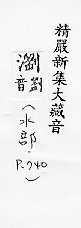 精嚴新集大藏音
瀏 劉音
(水部.
P.940)